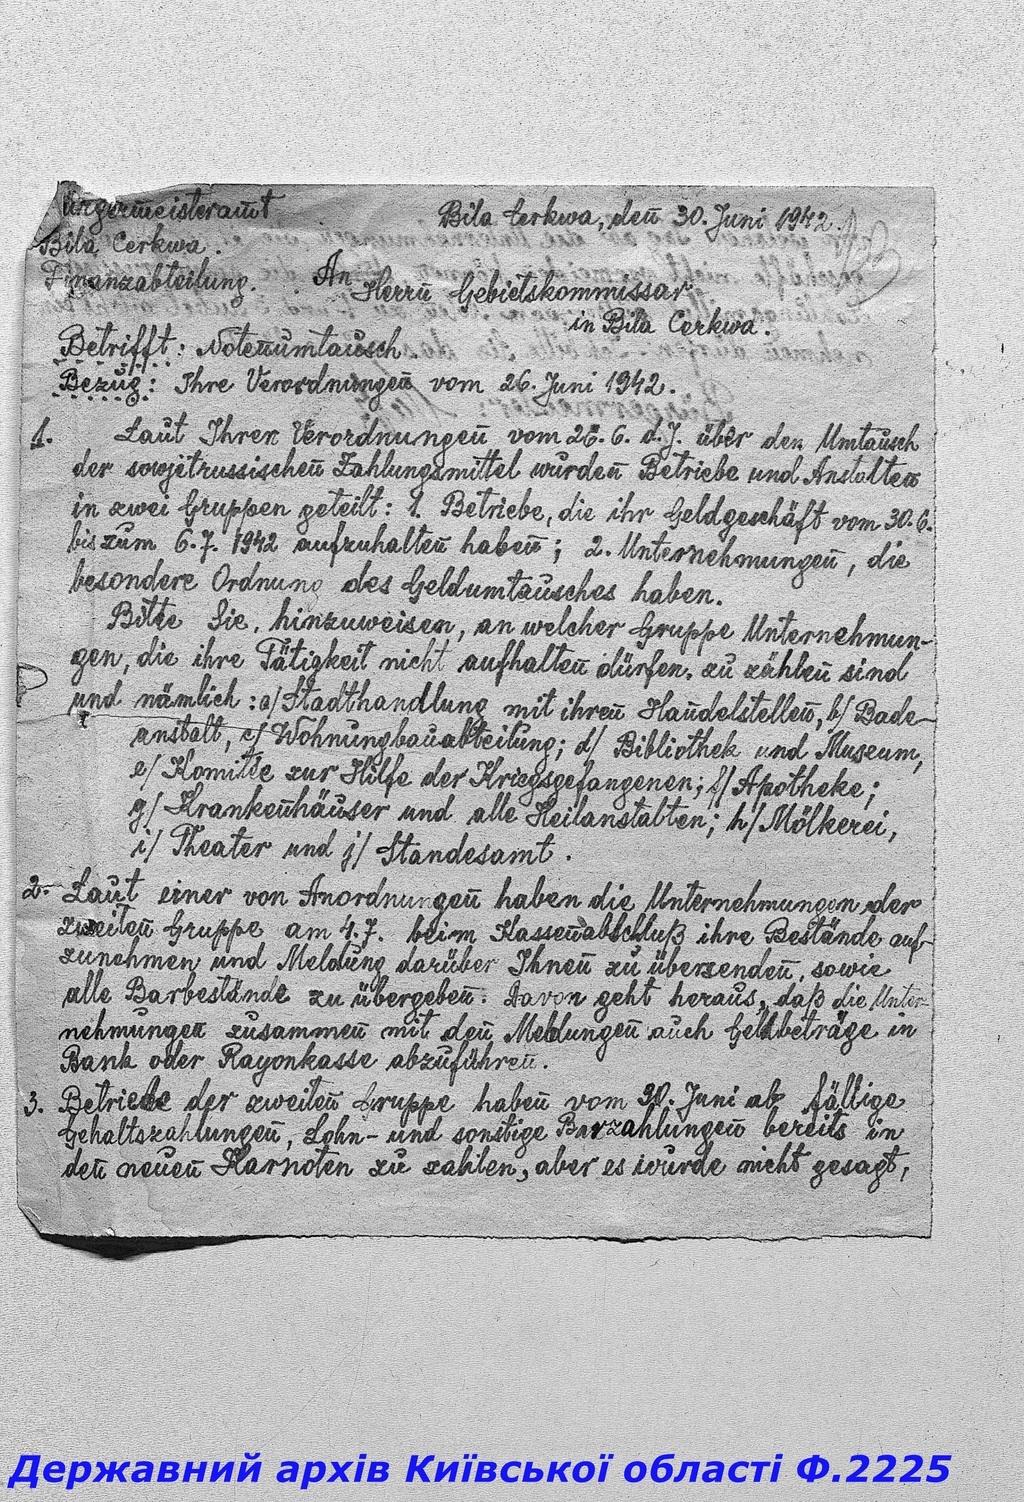 ürgermeisteramt
Bila Cerkwa, den 30. Juni 1942.
Bila Cerkwa.
Finanzabteilung.
An
Herrn Gebietskommissar
in Bila Cerkwa.
Betrifft: Notenumtausch
Bezug: Ihre Verordnungen vom 26. Juni 1942.
1. Laut Ihren Verordnungen vom 26.6. d.J. über den Umtausch
der sowjetrussischen Zahlungsmittel wurden Betriebe und Anstalten
in zwei Gruppen geteilt: 1. Betriebe, die ihr Geldgeschäft vom 30.6.
bis zum 6.7. 1942 aufzuhalten haben; 2. Unternehmungen, die
besondere Ordnung des Geldumtausches haben.
Bitte Sie, hinzuweisen, an welcher Gruppe Unternehmun-
gen, die ihre Tätigkeit nicht aufhalten dürfen, zu zählen sind
und nämlich: a/ Stadthandlung mit ihren Handelstellen, b/ Bade-
anstalt, c/ Wohnungbauabteilung; d/ Bibliothek und Museum,
e/ Komitte zur Hilfe der Kriegsgefangenen; f/ Apotheke;
g/ Krankenhäuser und alle Heilanstalten; h/ Mölkerei,
i/ Theater und j/ Standesamt.
2. Laut einer von Anordnungen haben die Unternehmungen der
zweiten Gruppe am 4.7. beim Kassenabschluß ihre Bestände auf-
zunehmen und Meldung darüber Ihnen zu übersenden, sowie
alle Barbestände zu übergeben. Davon geht heraus, daß die Unter-
nehmungen zusammen mit den Meldungen auch Geldbeträge in
Bank oder Rayonkasse abzuführen.
3. Betriebe der zweiten Gruppe haben vom 30. Juni ab fällige
Gehaltszahlungen, Lohn- und sonstige Barzahlungen bereits in
den neuen Karnoten zu zahlen, aber es wurde nicht gesagt,
Державний архів Київської області Ф.2225